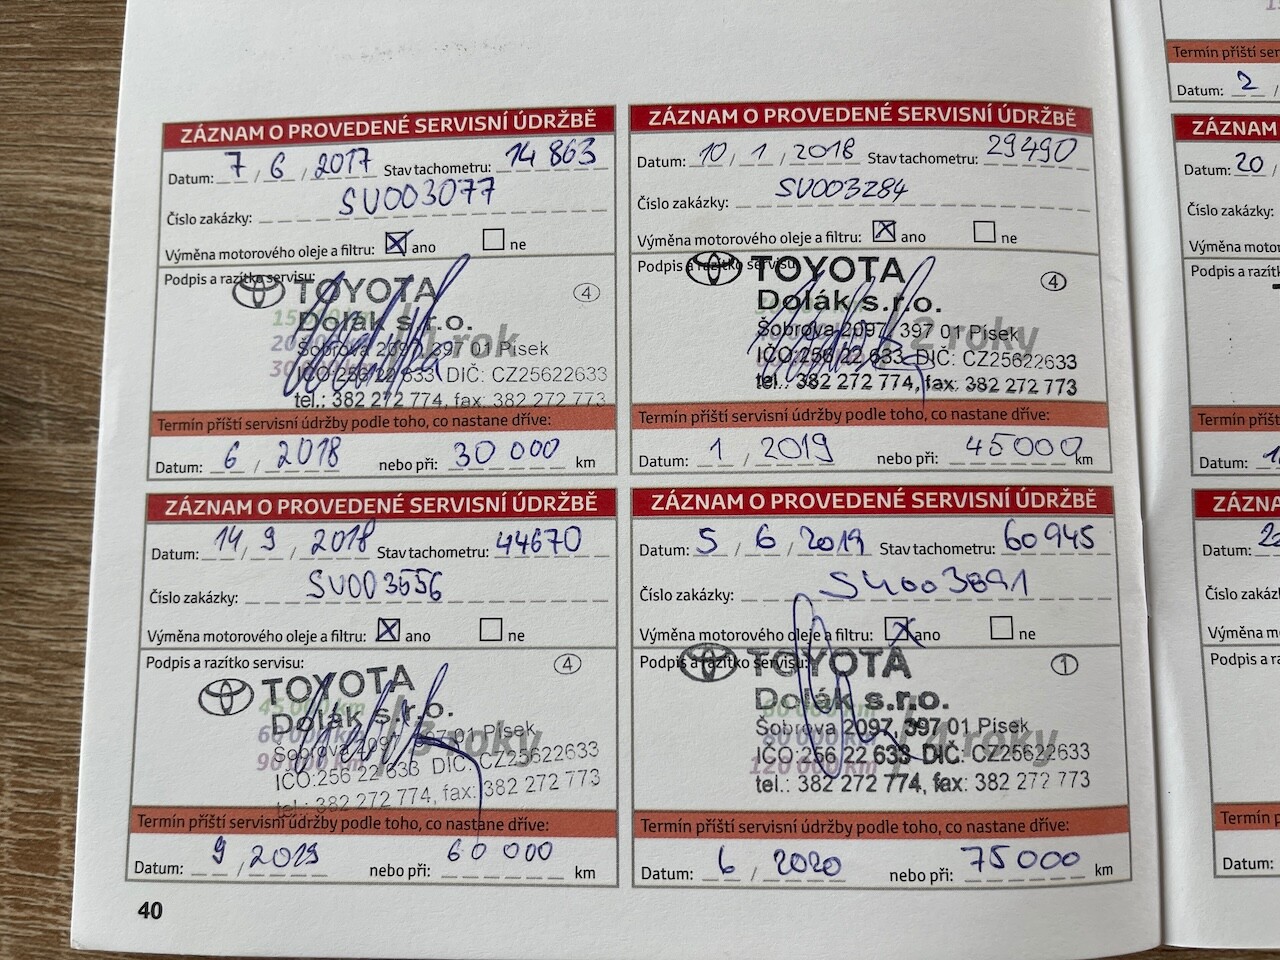 ZÁZNAM O PROVEDENÉ SERVISNÍ ÚDRŽBĚ
Datum: 7 / 6 / 2017 Stav tachometru: 14 863
Číslo zakázky: SU003077
Výměna motorového oleje a filtru: ano ne
Podpis a razítko servisu: 4
TOYOTA
Dolák s.r.o.
Šobrova 2097, 397 01 Písek
1 rok
IČO:256 22 633 DIČ: CZ25622633
tel.: 382 272 774, fax: 382 272 773
Termín příští servisní údržby podle toho, co nastane dříve:
Datum: 6 / 2018 nebo při: 30 000 km
ZÁZNAM O PROVEDENÉ SERVISNÍ ÚDRŽBĚ
Datum: 10 / 1 / 2018 Stav tachometru: 29490
Číslo zakázky: SU003284
Výměna motorového oleje a filtru: ano ne
Podpis a razítko servisu: 4
TOYOTA
Dolák s.r.o.
Šobrova 2097, 397 01 Písek
2 roky
IČO:256 22 633 DIČ: CZ25622633
tel.: 382 272 774, fax: 382 272 773
Termín příští servisní údržby podle toho, co nastane dříve:
Datum: 1 / 2019 nebo při: 45000 km
ZÁZNAM O PROVEDENÉ SERVISNÍ ÚDRŽBĚ
Datum: 14 / 9 / 2018 Stav tachometru: 44670
Číslo zakázky: SU003556
Výměna motorového oleje a filtru: ano ne
Podpis a razítko servisu: 4
TOYOTA
45 000 km
Dolák s.r.o.
Šobrova 2097, 397 01 Písek
3 roky
90 000 km
IČO:256 22 633 DIČ: CZ25622633
tel.: 382 272 774, fax: 382 272 773
Termín příští servisní údržby podle toho, co nastane dříve:
Datum: 9 / 2019 nebo při: 60 000 km
ZÁZNAM O PROVEDENÉ SERVISNÍ ÚDRŽBĚ
Datum: 5 / 6 / 2019 Stav tachometru: 60945
Číslo zakázky: SU003891
Výměna motorového oleje a filtru: ano ne
Podpis a razítko servisu: 1
TOYOTA
Dolák s.r.o.
Šobrova 2097, 397 01 Písek
4 roky
IČO:256 22 633 DIČ: CZ25622633
120 000 km
tel.: 382 272 774, fax: 382 272 773
Termín příští servisní údržby podle toho, co nastane dříve:
Datum: 6 / 2020 nebo při: 75000 km
40
Termín příští
Datum: 2 /
ZÁZNAM
Datum: 20 /
Číslo zakázky:
Výměna
Podpis a
Termín
Datum:
Datum:
Číslo
Výměna
Podpis a
Termín
Datum: